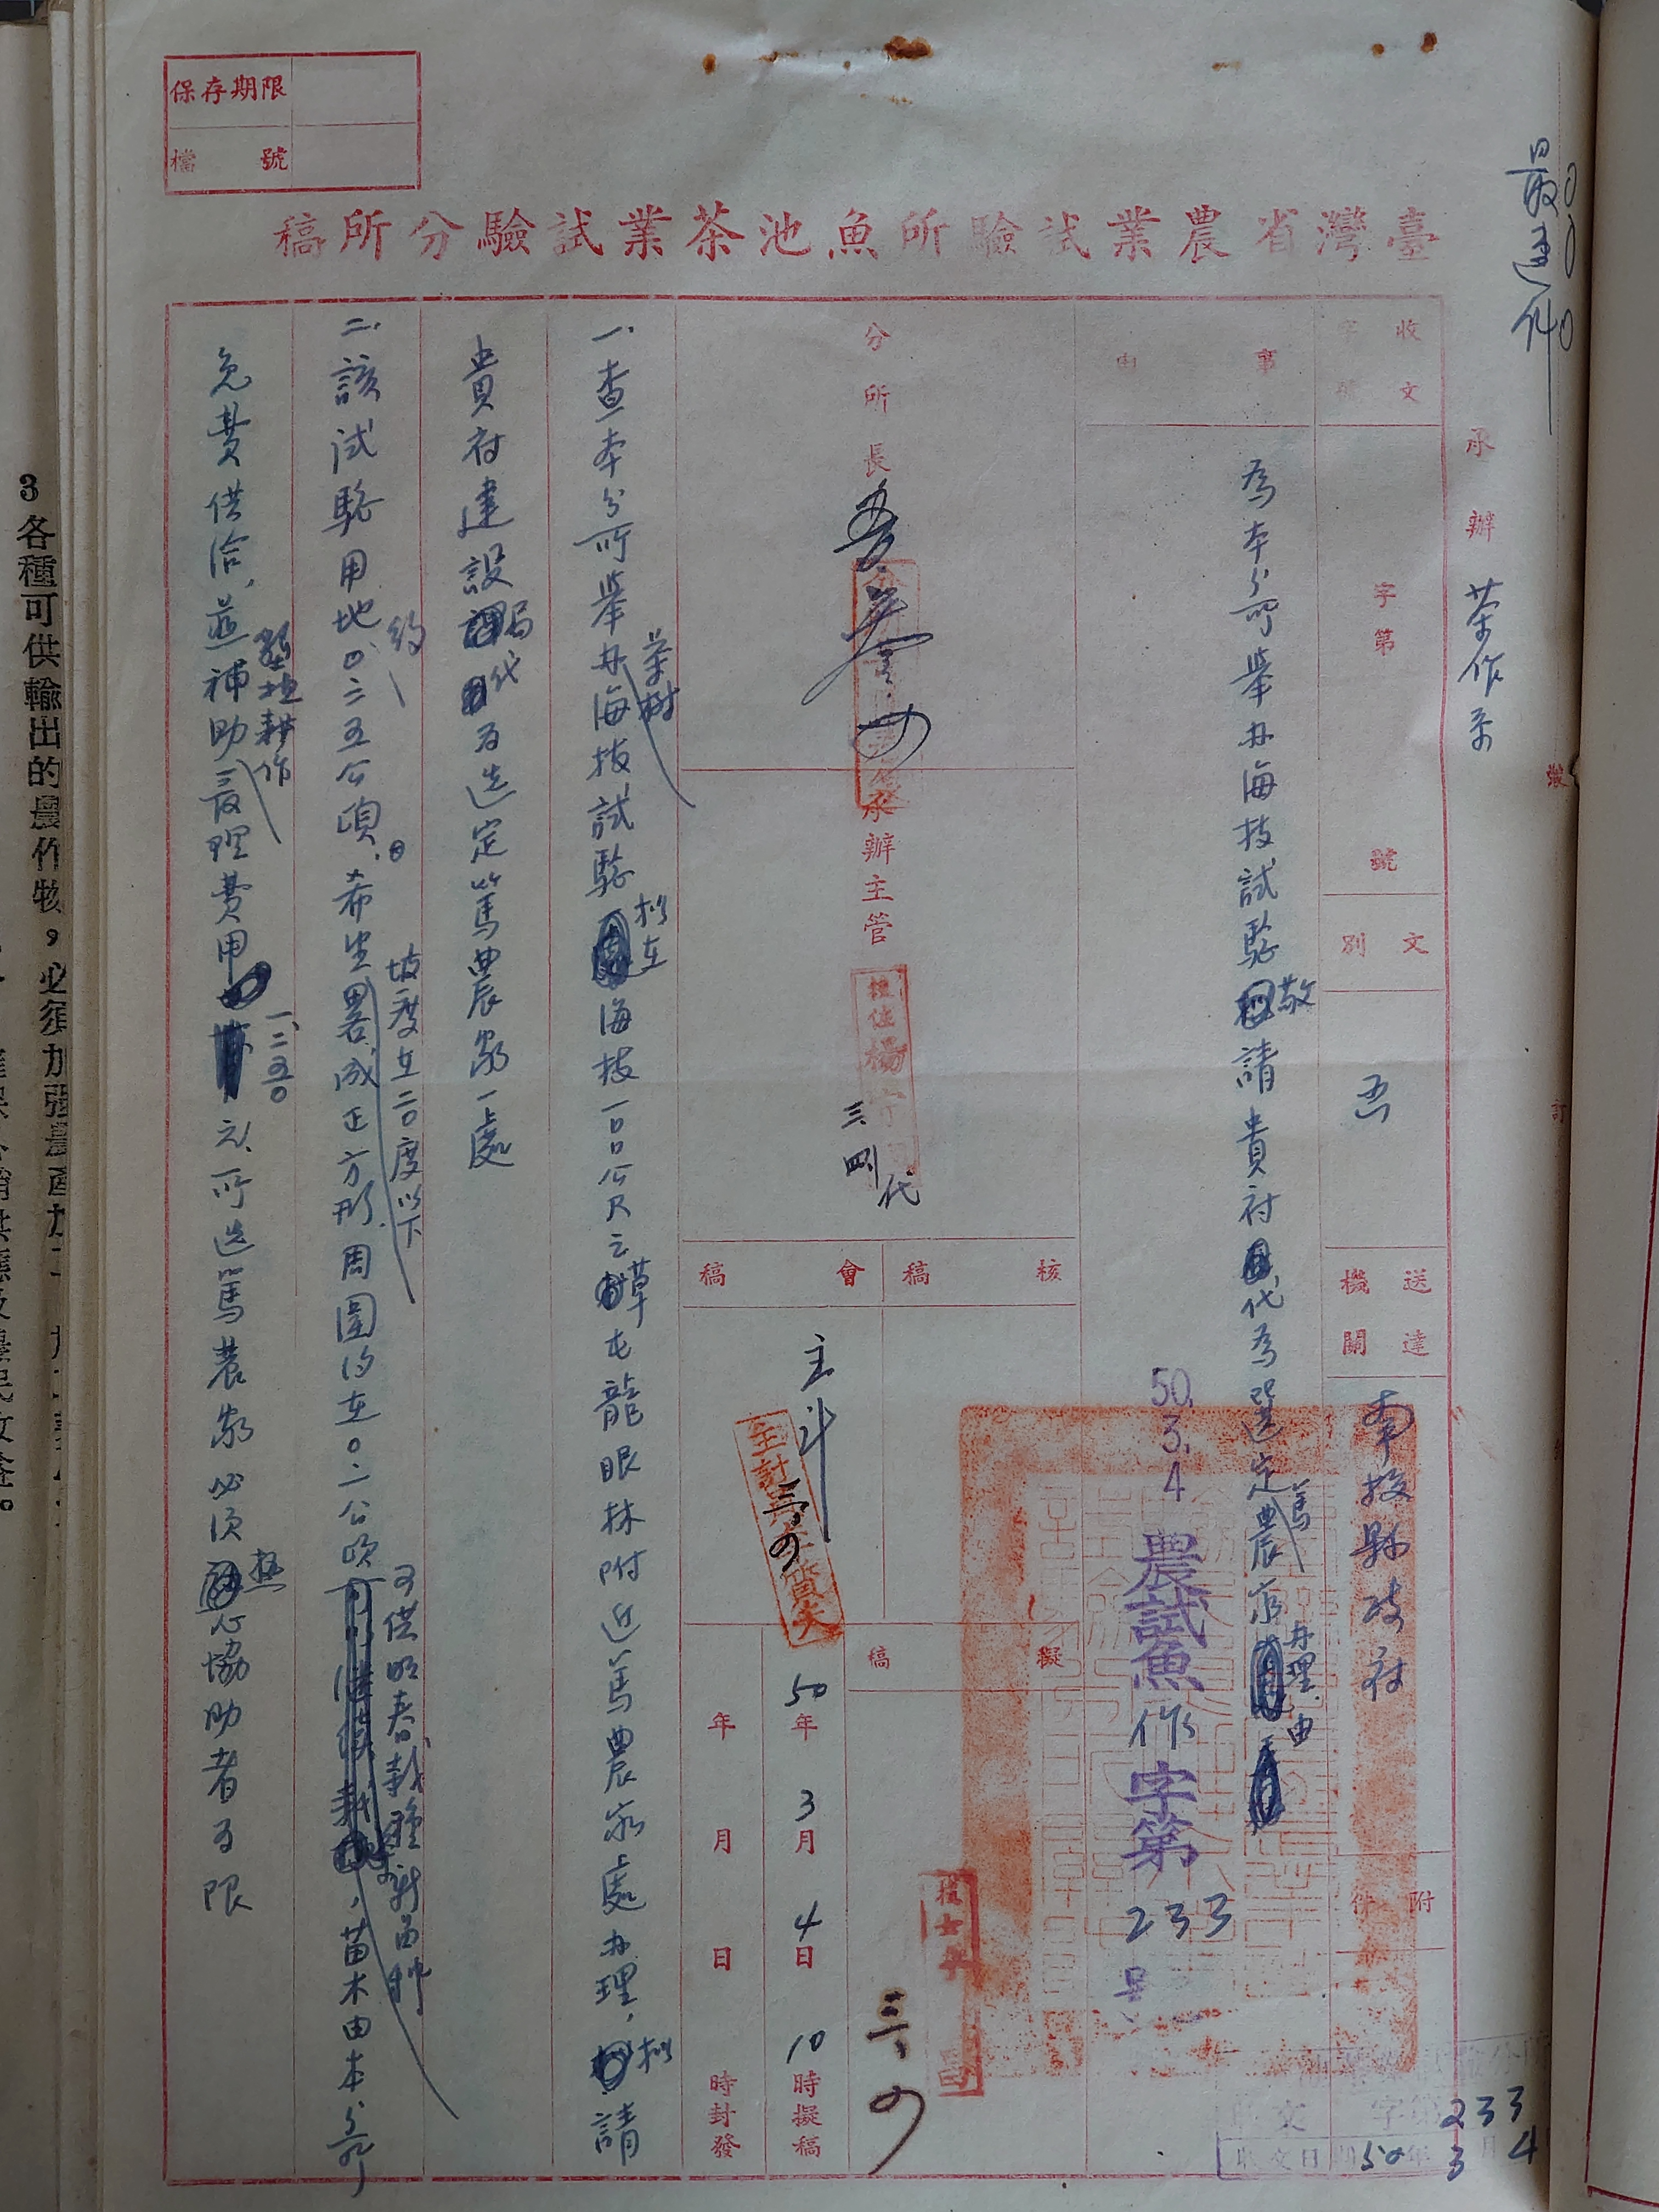 最速件
保存期限
檔號
臺灣省農業試驗所魚池茶業試驗分所稿
承辦 茶作系
收文 字第 號
文別
送達機關 南投縣政府
附件
事由
為本分所舉办海拔試驗敬請貴府代為選定篤農家办理由
50.3.4 農試魚作字第233号
分所長
承辦主管
代
核稿
會稿
主計
擬稿
50年3月4日10時擬稿
年月日時封發
一、查本分所舉办茶樹海拔試驗擬在海拔一〇〇公尺之草屯龍眼林附近篤農家處办理，擬請
貴府建設局代為选定篤農家一處
二、該試驗用地約〇.二五公頃。希坐坡度在二〇度以下畧成正方形周圍約在〇.二公頃可供明春栽種新苗，苗木由本分所
免費供洽，並補助整地耕作管理費用一、二五〇元，所选篤農家必須熱心協助者為限
收文 字第 233
收文日期 50年3月4
裝
訂
3 各種可供輸出的農作物，必須加強農產加工